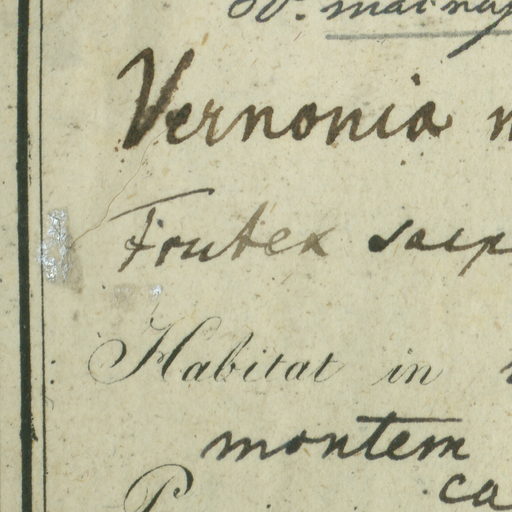 Vernonia
Frutex saep
Habitat in
montem
ca